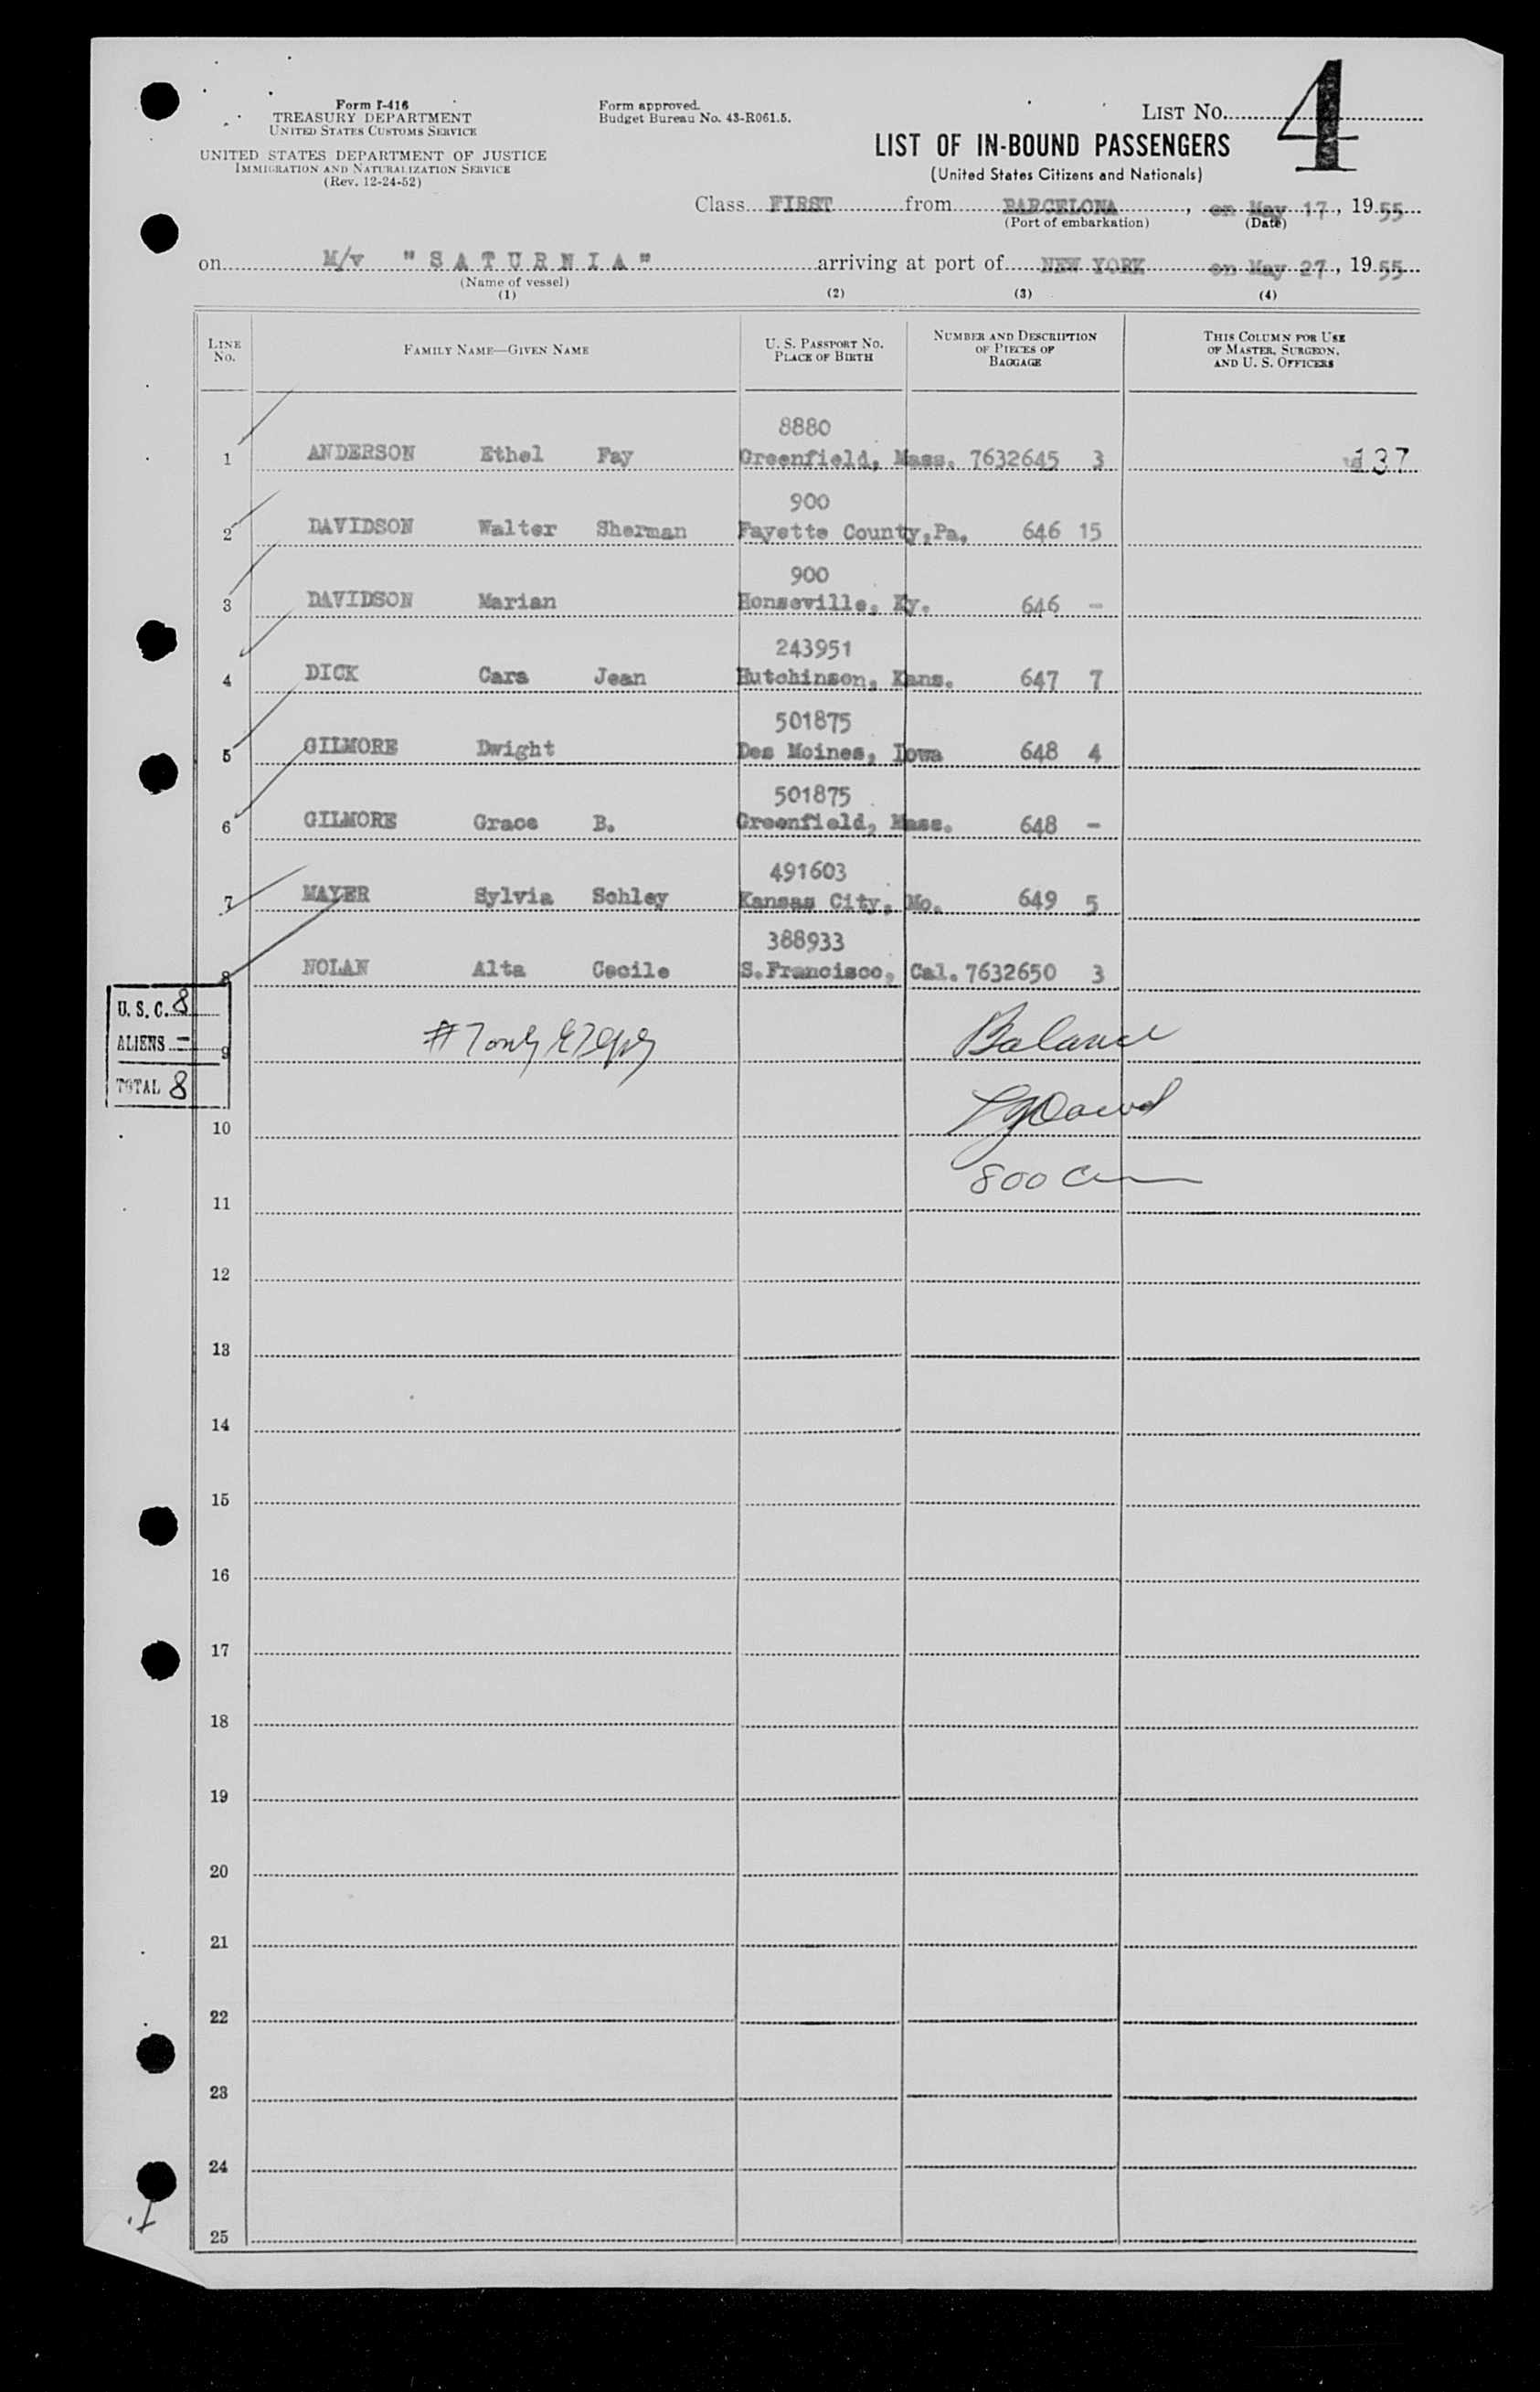 Form I-416
TREASURY DEPARTMENT
UNITED STATES CUSTOMS SERVICE
UNITED STATES DEPARTMENT OF JUSTICE
IMMIGRATION AND NATURALIZATION SERVICE
(Rev. 12-24-52)
Form approved.
Budget Bureau No. 43-R061.5.
LIST NO. 4
LIST OF IN-BOUND PASSENGERS
(United States Citizens and Nationals)
Class FIRST from BARCELONA, on May 17, 1955
(Port of embarkation) (Date)
on M/v "SATURNIA" arriving at port of NEW YORK on May 27, 1955
(Name of vessel)
(1) (2) (3) (4)
LINE NO. FAMILY NAME—GIVEN NAME U. S. PASSPORT NO. PLACE OF BIRTH NUMBER AND DESCRIPTION OF PIECES OF BAGGAGE THIS COLUMN FOR USE OF MASTER, SURGEON, AND U. S. OFFICERS
8880
1 ANDERSON Ethel Fay Greenfield, Mass. 7632645 3 137
900
2 DAVIDSON Walter Sherman Fayette County,Pa. 646 15
900
3 DAVIDSON Marian Honseville, Ky. 646 -
243951
4 DICK Cara Jean Hutchinson, Kans. 647 7
501875
5 GILMORE Dwight Des Moines, Iowa 648 4
501875
6 GILMORE Grace B. Greenfield, Mass. 648 -
491603
7 MAYER Sylvia Schley Kansas City, Mo. 649 5
388933
8 NOLAN Alta Cecile S.Francisco, Cal. 7632650 3
U. S. C. 8
ALIENS -
TOTAL 8
9 #7 only Balance
10
800
11
12
13
14
15
16
17
18
19
20
21
22
23
24
25